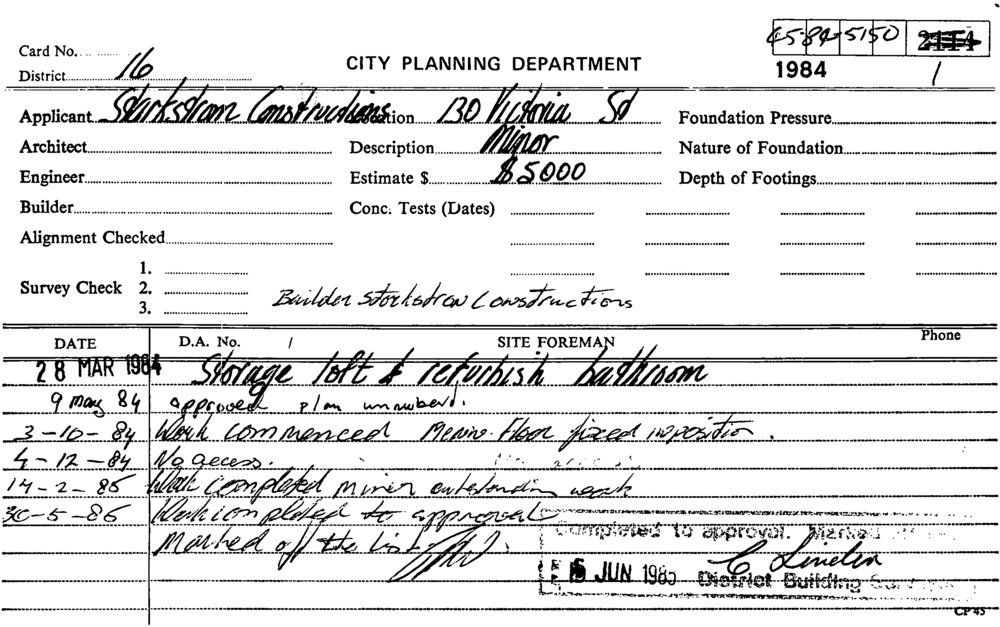 45-84-5150 2114
Card No.
District 16
CITY PLANNING DEPARTMENT
1984 /
Applicant Starkstrom Constructions Location 130 Victoria Sd Foundation Pressure
Architect Description Minor Nature of Foundation
Engineer Estimate $ $5000 Depth of Footings
Builder Conc. Tests (Dates)
Alignment Checked
1.
Survey Check 2.
3.
Builder Constructions
DATE D.A. No. / SITE FOREMAN Phone
28 MAR 1984 Storage loft & refurbish bathroom
9 may 84 approved plan unnumberd.
3-10-84 Work commenced Floor fixed in position.
4-12-84 No access.
14-2-85 Work completed minor outstanding work
30-5-85 Work completed to approval
Marked off the list
Completed to approval. Marked
5 JUN 1985 C Linden
District Building
CP 45